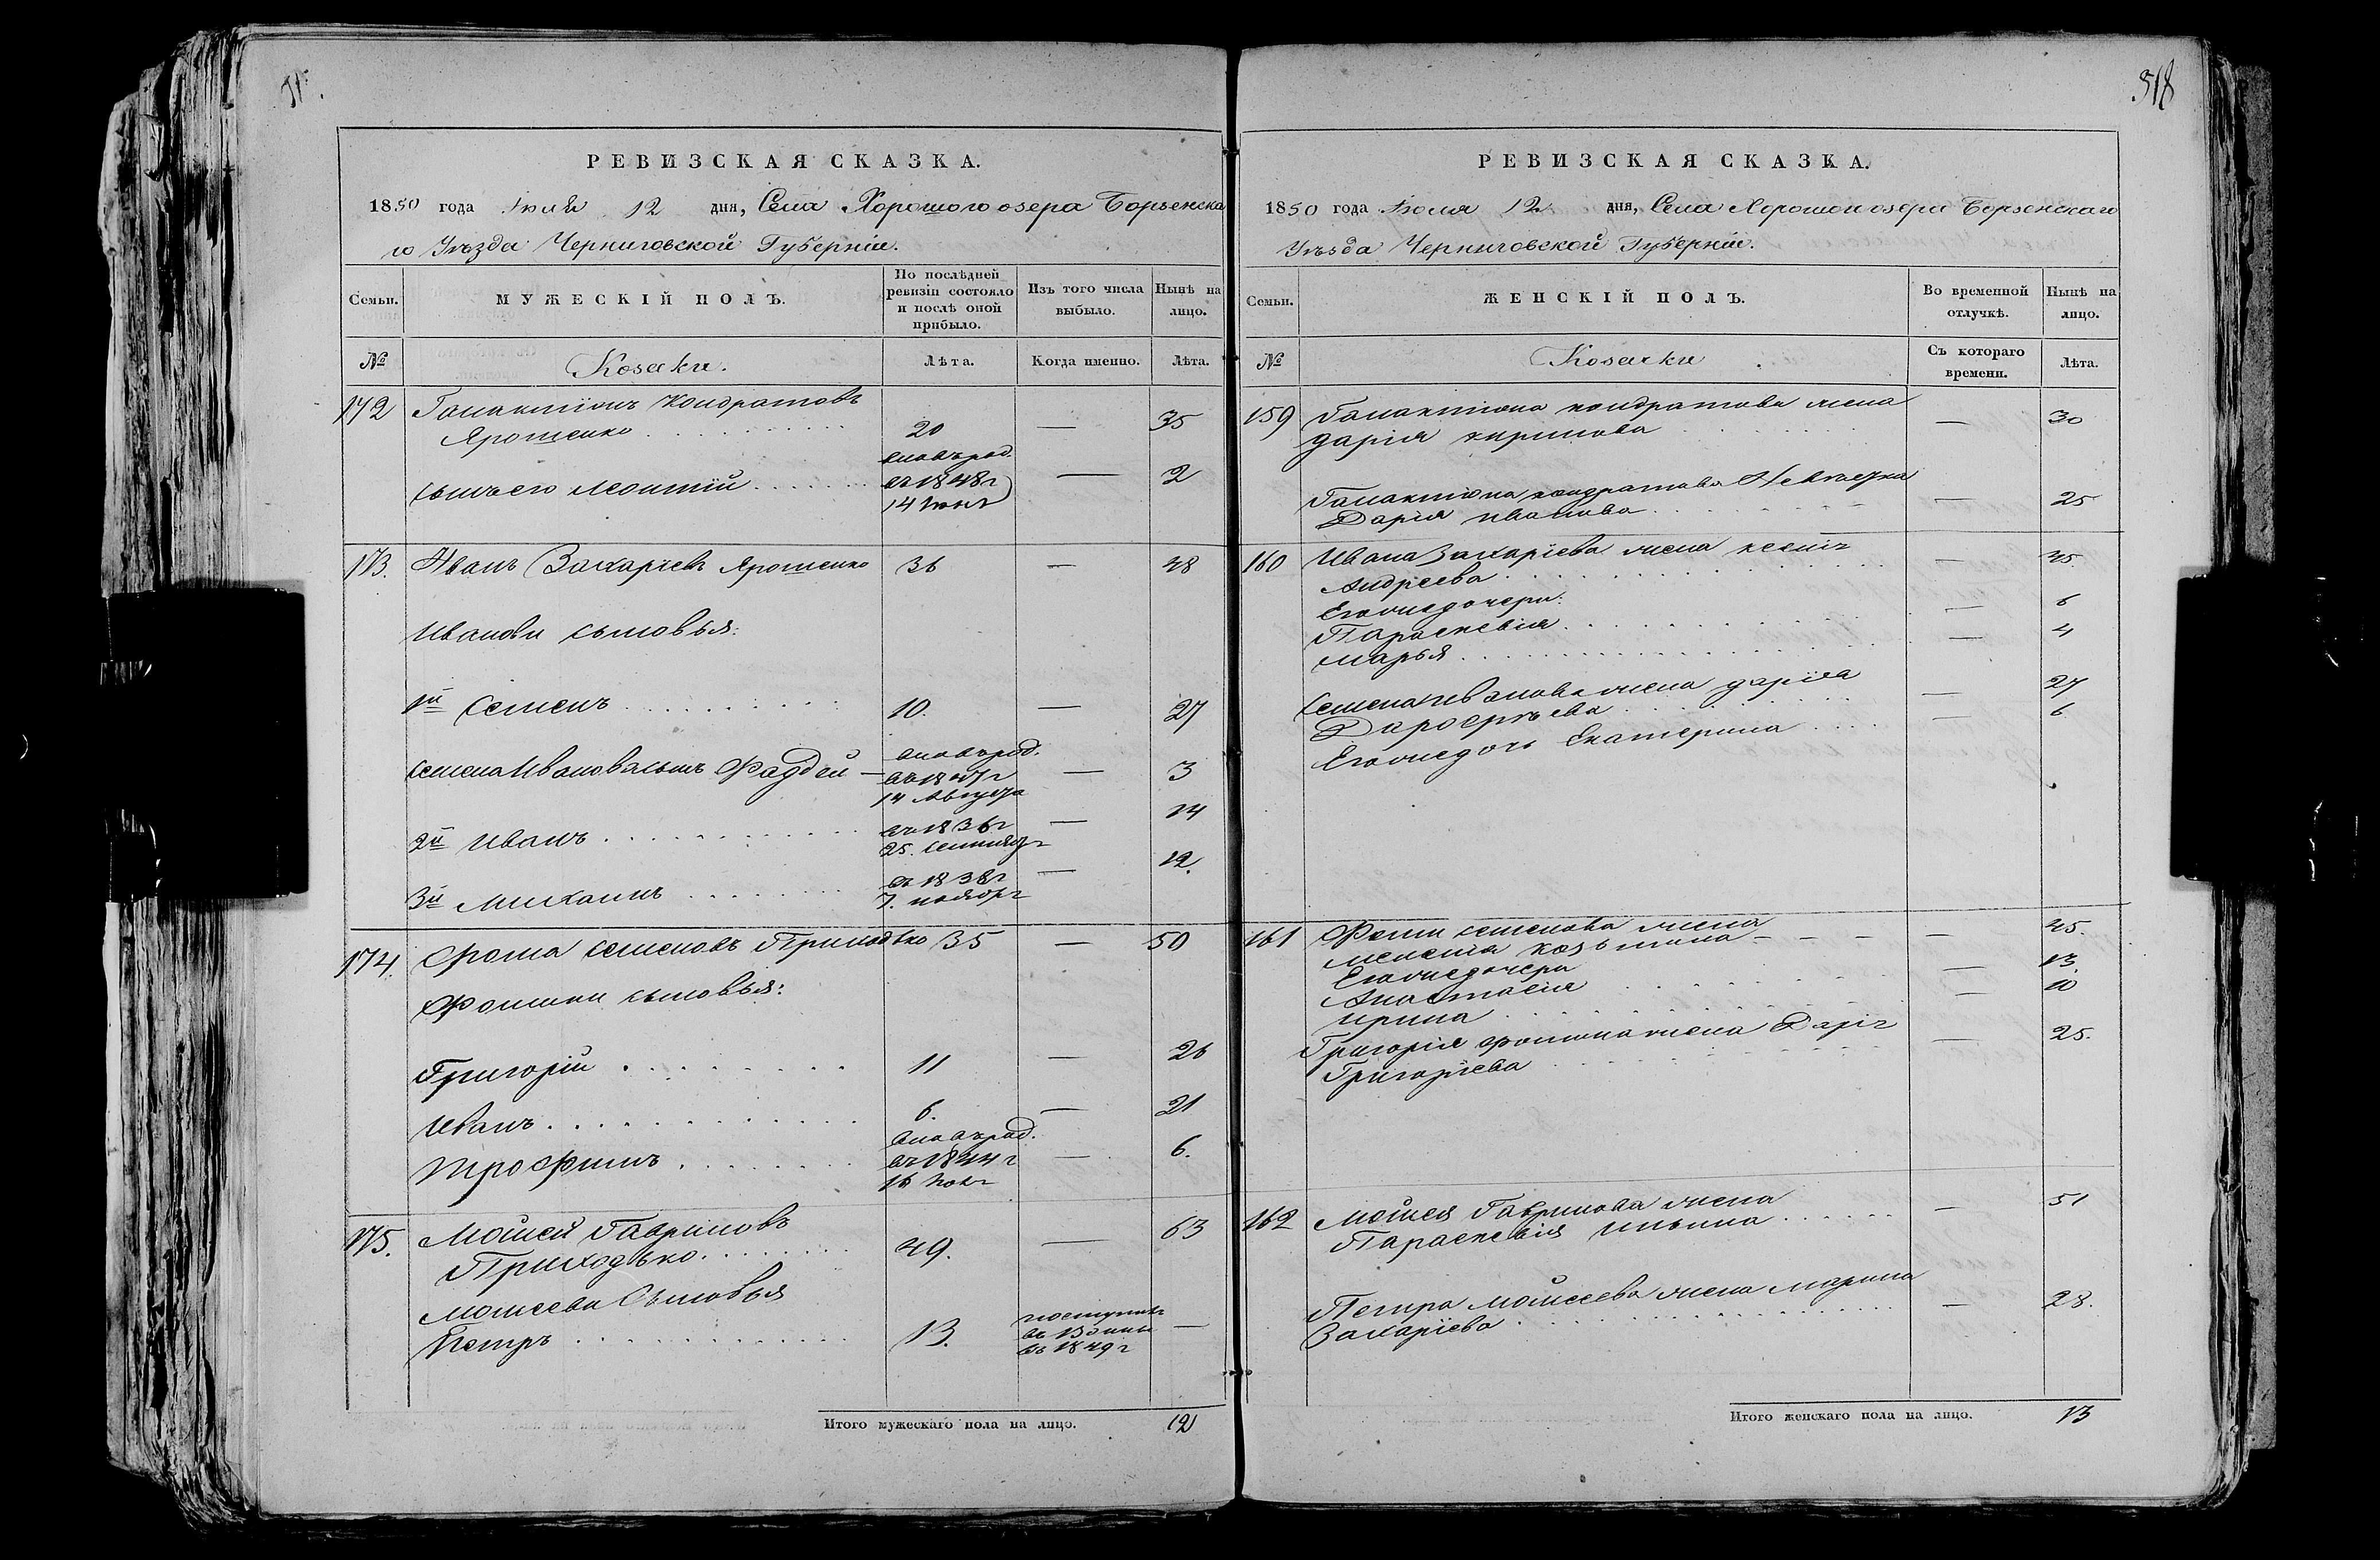 518
РЕВИЗСКАЯ СКАЗКА.
1850 года Июля 12 дня, Села Хорошого озера Борзенска
го Уѣзда Черниговской Губерніи.
Семьи. МУЖЕСКІЙ ПОЛЪ. По послѣдней ревизіи состояло и послѣ оной прибыло. Изъ того числа выбыло. Нынѣ на лицо.
№ Козаки. Лѣта. Когда именно. Лѣта.
172 Галактіонъ Кондратовъ
Ярошенко 20 — 35
вновь род.
сынъ его Леонтій въ 1848 г — 2
14 Іюня
173. Иванъ Захаріевъ Ярошенко 36 — 48
Ивановы сыновья:
1й Семенъ 10. — 27
вновь род.
Семена Иванова сынъ Фаддей — въ 1847 г — 3
14 Августа
2й Иванъ въ 1836 г — 14
25. Сентября
3й Михаилъ въ 1838 г — 12.
7. ноября
174. Фома Семеновъ Приходько 35 — 50
Фомины сыновья:
Григорій 11 — 26
Иванъ 6. — 21
вновь род.
Трофимъ въ 1844 г — 6.
16
175. Мойсей Гавриловъ
Приходько 49. — 63
Моисеевы Сыновья
Петръ 13. поступилъ —
въ 1849 г
Итого мужескаго пола на лицо. 12
РЕВИЗСКАЯ СКАЗКА.
1850 года Июля 12 дня, Села Хорошого озера Борзенскаго
Уѣзда Черниговской Губерніи.
Семьи. ЖЕНСКІЙ ПОЛЪ. Во временной отлучкѣ. Нынѣ на лицо.
№ Козачки Съ котораго времени. Лѣта.
159 Галактіона Кондратова жена
Дарія Кирилова — 30
Галактіона Кондратова Невѣстка
Дарія Иванова — 25
160 Ивана Захаріева жена Ксенія
Андрѣева — 45
Его же дочери:
Параскевія — 6
Марья — 4
Семена Иванова жена Дарія
Дарофѣева — 27
Его же дочь Екатерина — 6
161 Фомы Семенова жена
Козьмина — 45.
Его же дочери
Анастасія — 13.
Ирина — 10
Григорія Фомина жена Дарія
Григоріева — 25.
162 Мойсея Гаврилова жена
Параскевія Ильина — 51
Петра Мойсеева жена Марина
Захаріева — 28.
Итого женскаго пола на лицо. 13